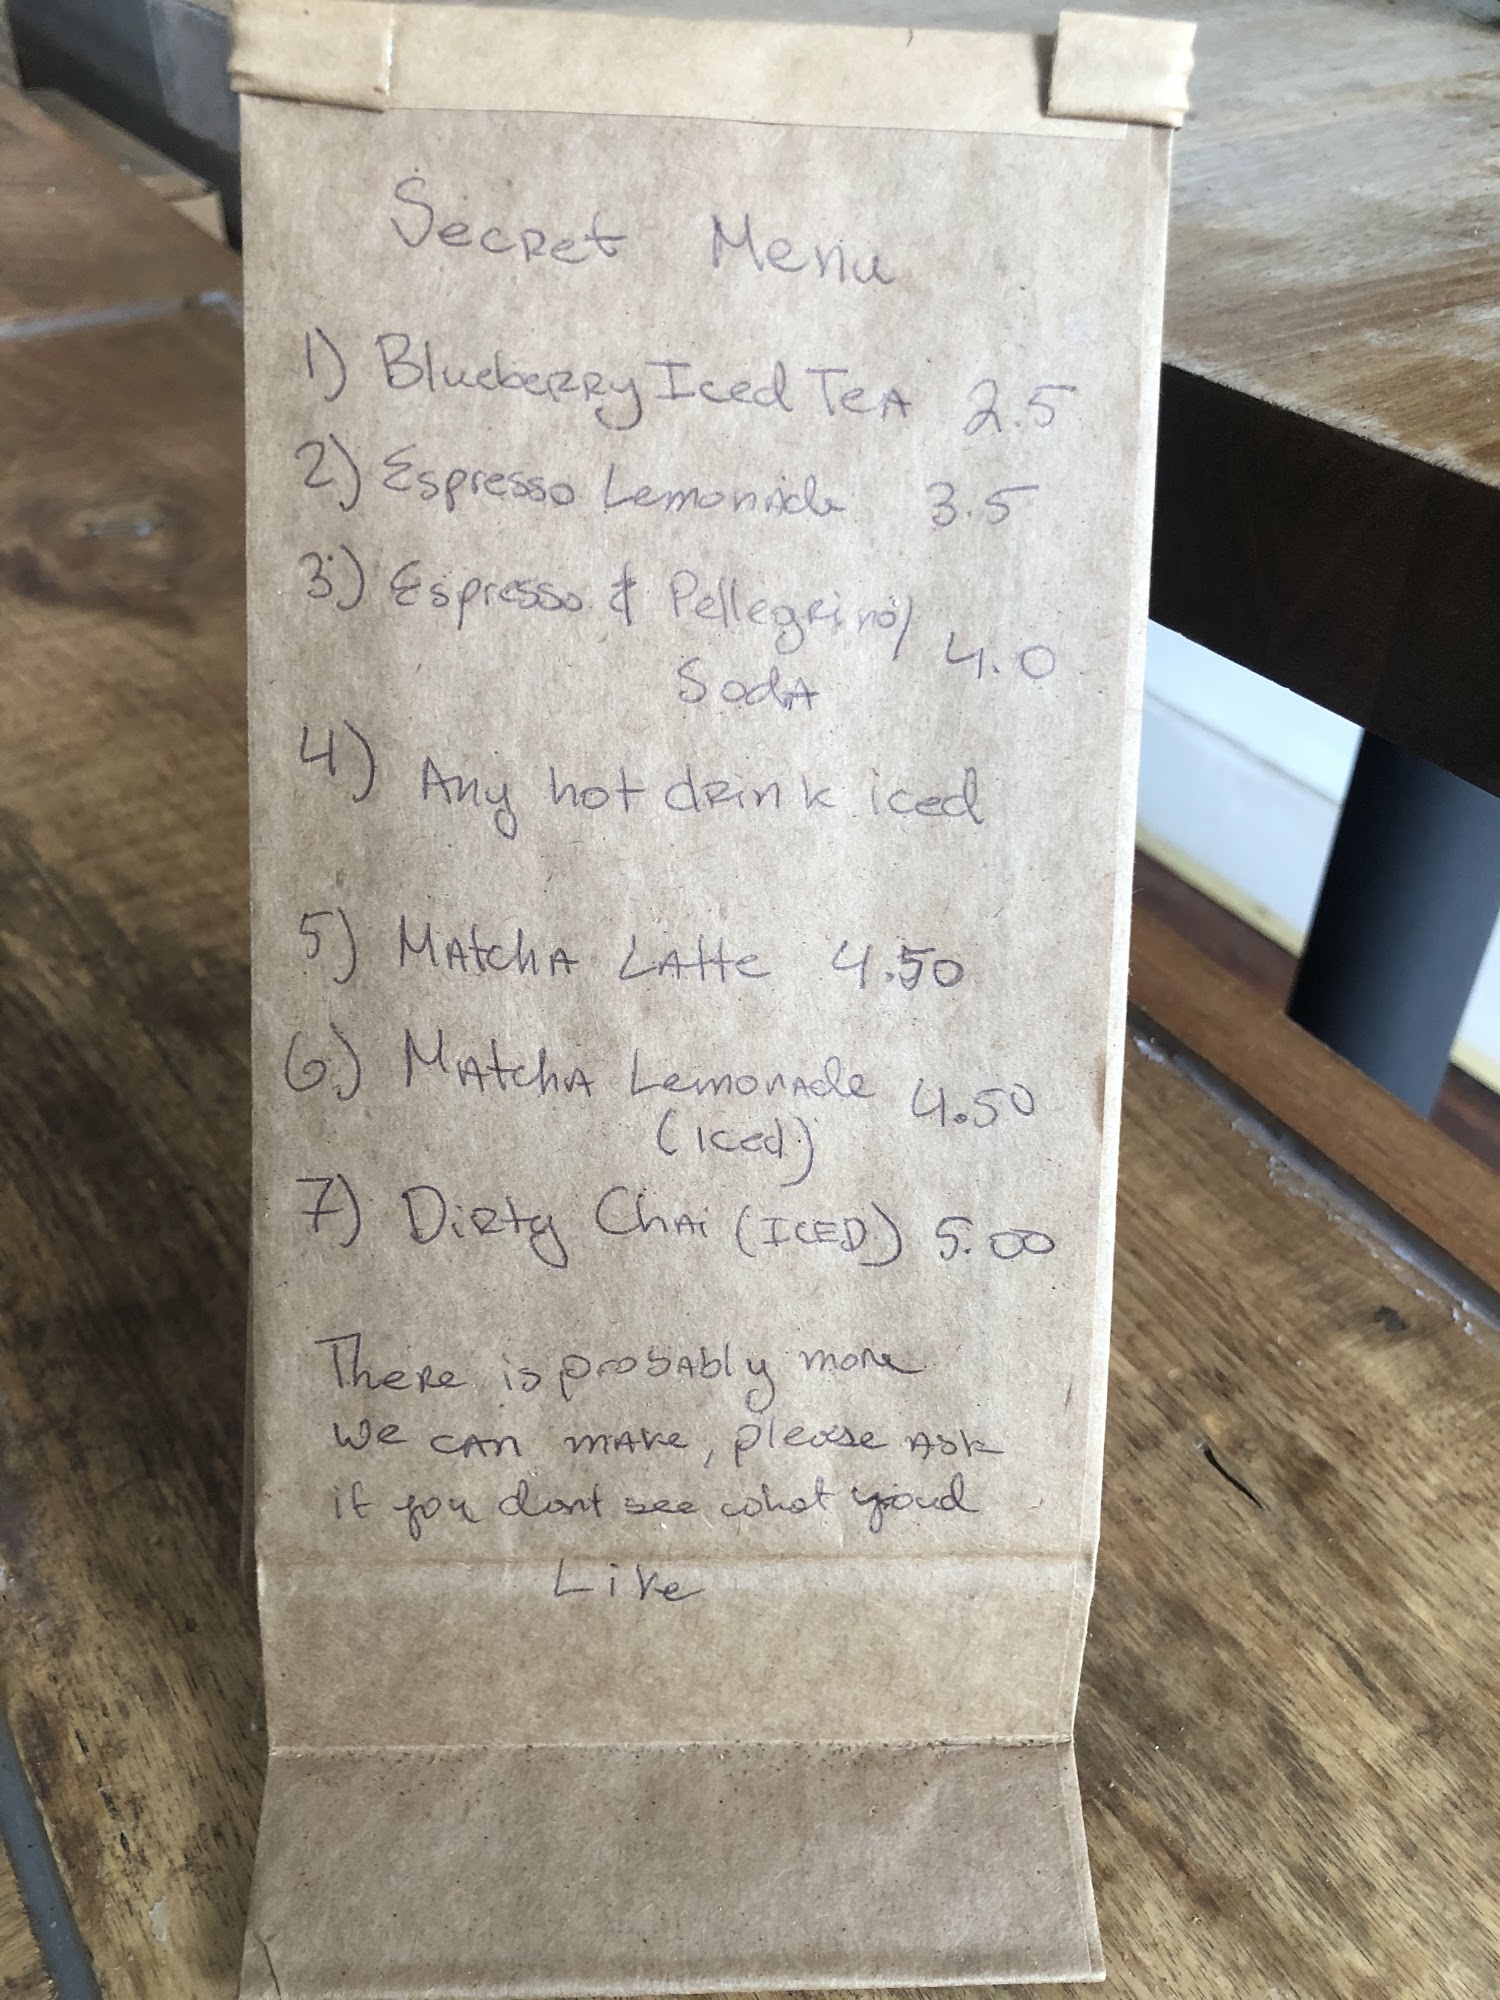 Secret Menu
1) Blueberry Iced Tea 2.5
2) Espresso Lemonade 3.5
3) Espresso & Pellegrino/
Soda 4.0
4) Any hot drink iced
5) Matcha Latte 4.50
6) Matcha Lemonade 4.50
(iced)
7) Dirty Chai (ICED) 5.00
There is probably more
we can make, please ask
if you dont see what youd
Like